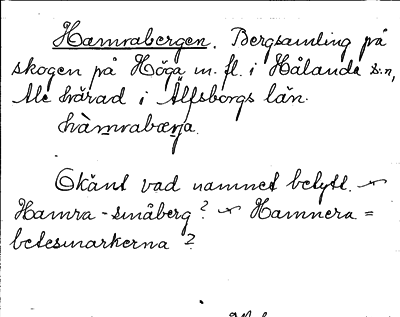 Hamrabergen. Bergsamling på
skogen på Höga m. fl. i Hålanda s:n,
Ale härad i Älfsborgs län.
hàmrabærja.
Okänt vad namnet betytt. –
Hamra-småberg? – Hamnera =
betesmarkerna?